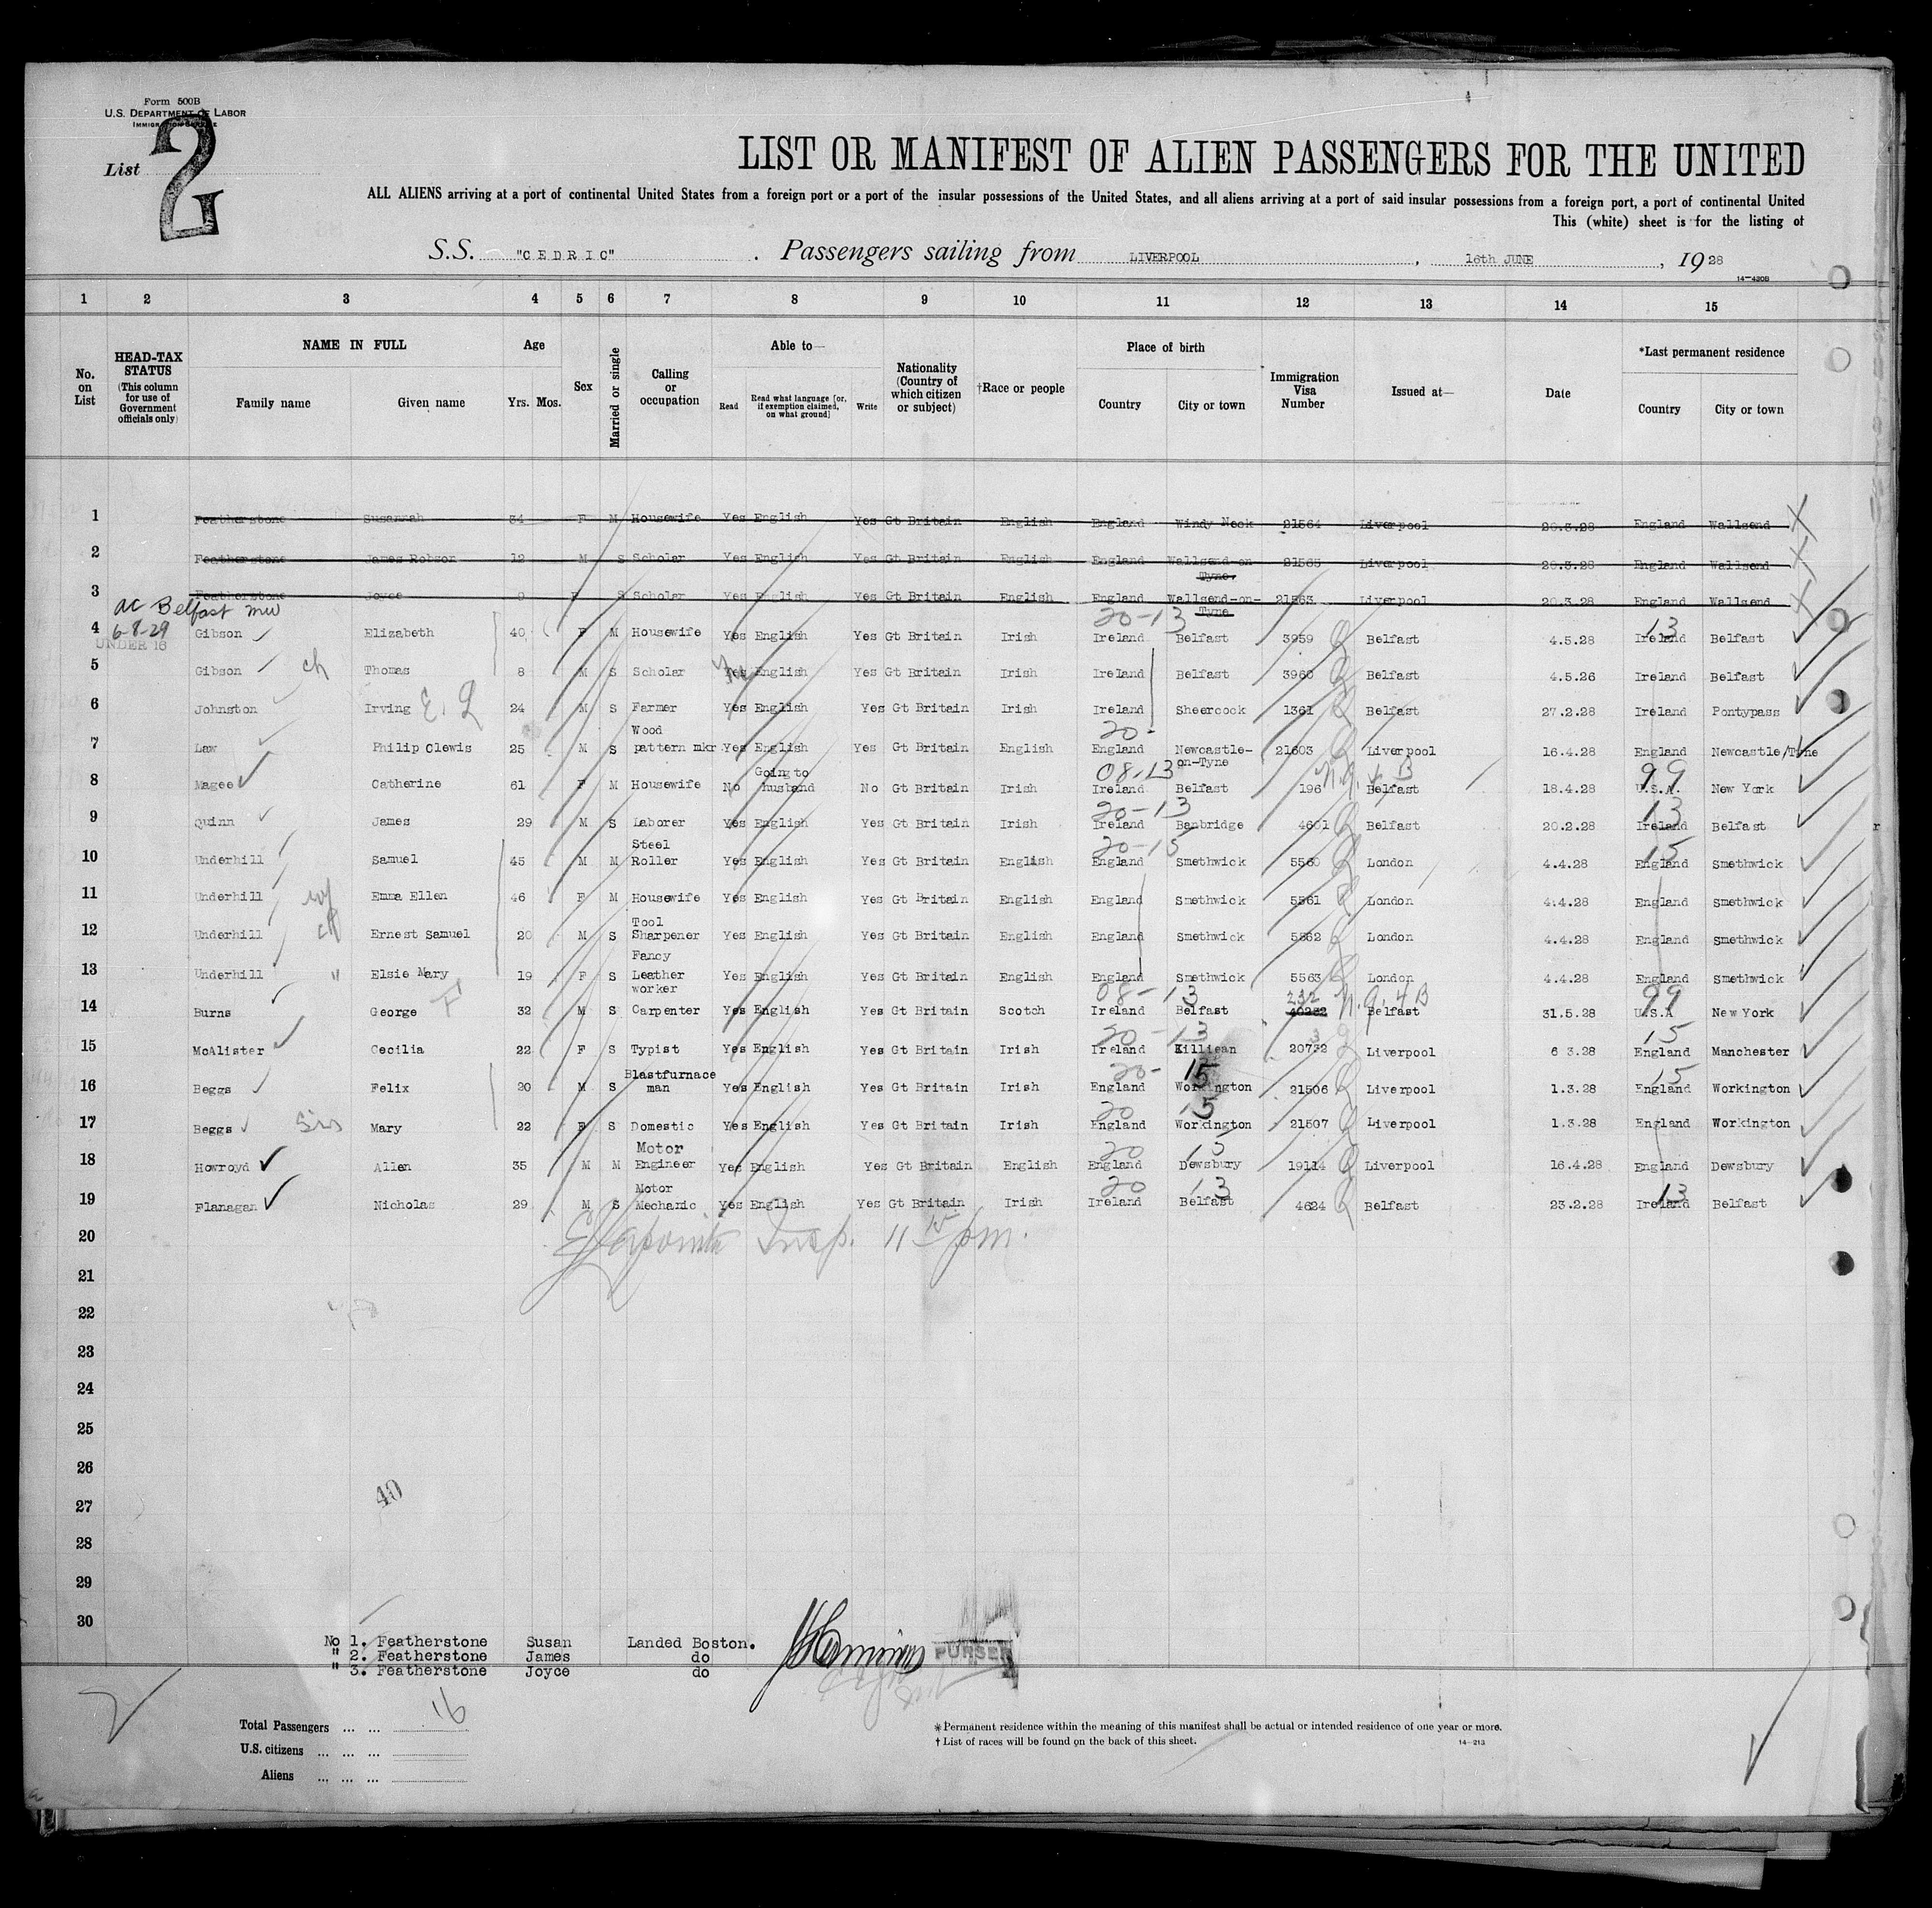 Form 500B
U.S. DEPARTMENT OF LABOR
IMMIGRATION SERVICE
List 2
LIST OR MANIFEST OF ALIEN PASSENGERS FOR THE UNITED
ALL ALIENS arriving at a port of continental United States from a foreign port or a port of the insular possessions of the United States, and all aliens arriving at a port of said insular possessions from a foreign port, a port of continental United
This (white) sheet is for the listing of
S.S. "CEDRIC" . Passengers sailing from LIVERPOOL , 16th JUNE , 1928
14-430B
1 2 3 4 5 6 7 8 9 10 11 12 13 14 15
No. on List HEAD-TAX STATUS (This column for use of Government officials only) NAME IN FULL Family name Given name Age Yrs. Mos. Sex Married or single Calling or occupation Able to— Read Read what language [or, if exemption claimed, on what ground] Write Nationality (Country of which citizen or subject) †Race or people Place of birth Country City or town Immigration Visa Number Issued at— Date *Last permanent residence Country City or town
1 Featherstone Susannah 34 F M Housewife Yes English Yes Gt Britain English England Windy Nook 21564 Liverpool 20.3.28 England Wallsend X
2 Featherstone James Robson 12 M S Scholar Yes English Yes Gt Britain English England Wallsend-on-Tyne. 21565 Liverpool 20.3.28 England Wallsend X
3 Featherstone Joyce 9 F S Scholar Yes English Yes Gt Britain English England Wallsend-on-Tyne 21563 Liverpool 20.3.28 England Wallsend X
ac Belfast mw
6-8-29
20-13 13
4 Gibson Elizabeth 40 F M Housewife Yes English Yes Gt Britain Irish Ireland Belfast 3959 Belfast 4.5.28 Ireland Belfast
UNDER 16
5 Gibson ch Thomas 8 M S Scholar Yes English Yes Gt Britain Irish Ireland Belfast 3960 Belfast 4.5.26 Ireland Belfast
6 Johnston Irving 24 M S Farmer Yes English Yes Gt Britain Irish Ireland Sheercock 1361 Belfast 27.2.28 Ireland Pontypass
20-
7 Law Philip Clewis 25 M S Wood pattern mkr. Yes English Yes Gt Britain English England Newcastle-on-Tyne 21603 Liverpool 16.4.28 England Newcastle/Tyne
08-13 N.Q. 4 B 99
8 Magee Catherine 61 F M Housewife No Going to husband No Gt Britain Irish Ireland Belfast 196 Belfast 18.4.28 U.S.A. New York
20-13 13
9 Quinn James 29 M S Laborer Yes English Yes Gt Britain Irish Ireland Banbridge 4601 Belfast 20.2.28 Ireland Belfast
20-15 15
10 Underhill Samuel 45 M M Steel Roller Yes English Yes Gt Britain English England Smethwick 5560 London 4.4.28 England Smethwick
11 Underhill wf Emma Ellen 46 F M Housewife Yes English Yes Gt Britain English England Smethwick 5561 London 4.4.28 England Smethwick
12 Underhill ch Ernest Samuel 20 M S Tool Sharpener Yes English Yes Gt Britain English England Smethwick 5562 London 4.4.28 England Smethwick
13 Underhill " Elsie Mary 19 F S Fancy Leather worker Yes English Yes Gt Britain English England Smethwick 5563 London 4.4.28 England Smethwick
08-13 232 N.Q. 4 B 99
14 Burns George 32 M S Carpenter Yes English Yes Gt Britain Scotch Ireland Belfast 40232 Belfast 31.5.28 U.S.A New York
20-13 15
15 McAlister Cecilia 22 F S Typist Yes English Yes Gt Britain Irish Ireland Killiean 20732 Liverpool 6 3.28 England Manchester
20-15 15
16 Beggs Felix 20 M S Blastfurnace man Yes English Yes Gt Britain Irish England Workington 21506 Liverpool 1.3.28 England Workington
20 15
17 Beggs Sis Mary 22 F S Domestic Yes English Yes Gt Britain Irish England Workington 21507 Liverpool 1.3.28 England Workington
20 15
18 Howroyd Allen 35 M M Motor Engineer Yes English Yes Gt Britain English England Dewsbury 19114 Liverpool 16.4.28 England Dewsbury
20 13 13
19 Flanagan Nicholas 29 M S Motor Mechanic Yes English Yes Gt Britain Irish Ireland Belfast 4624 Belfast 23.2.28 Ireland Belfast
20 Insp. 11 pm.
21
22
23
24
25
26
40
27
28
29
30
No 1. Featherstone Susan Landed Boston.
" 2. Featherstone James do
" 3. Featherstone Joyce do
PURSER
Total Passengers ... ... 16
U.S. citizens ... ... ...
Aliens ... ... ...
* Permanent residence within the meaning of this manifest shall be actual or intended residence of one year or more.
† List of races will be found on the back of this sheet.
14-213